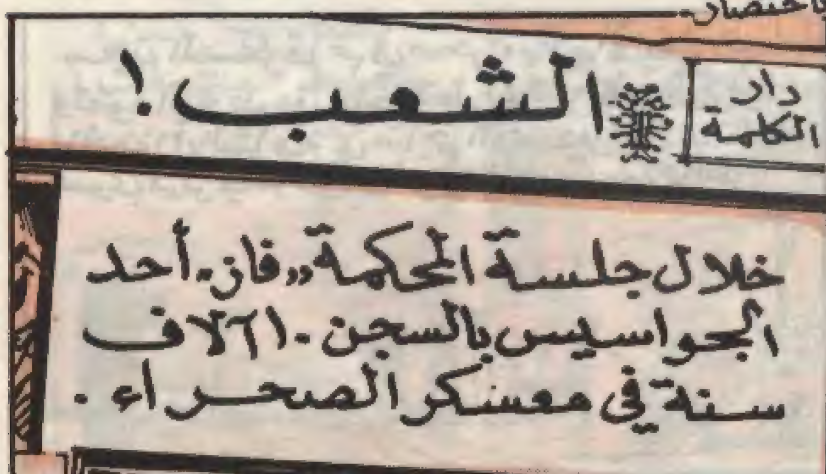 باختصار.
دار
الكلمة
الشعب!
خلال جلسة المحكمة „فاز. أحد
الجواسيس بالسجن ١٠ آلاف
سنة في معسكر الصحراء.